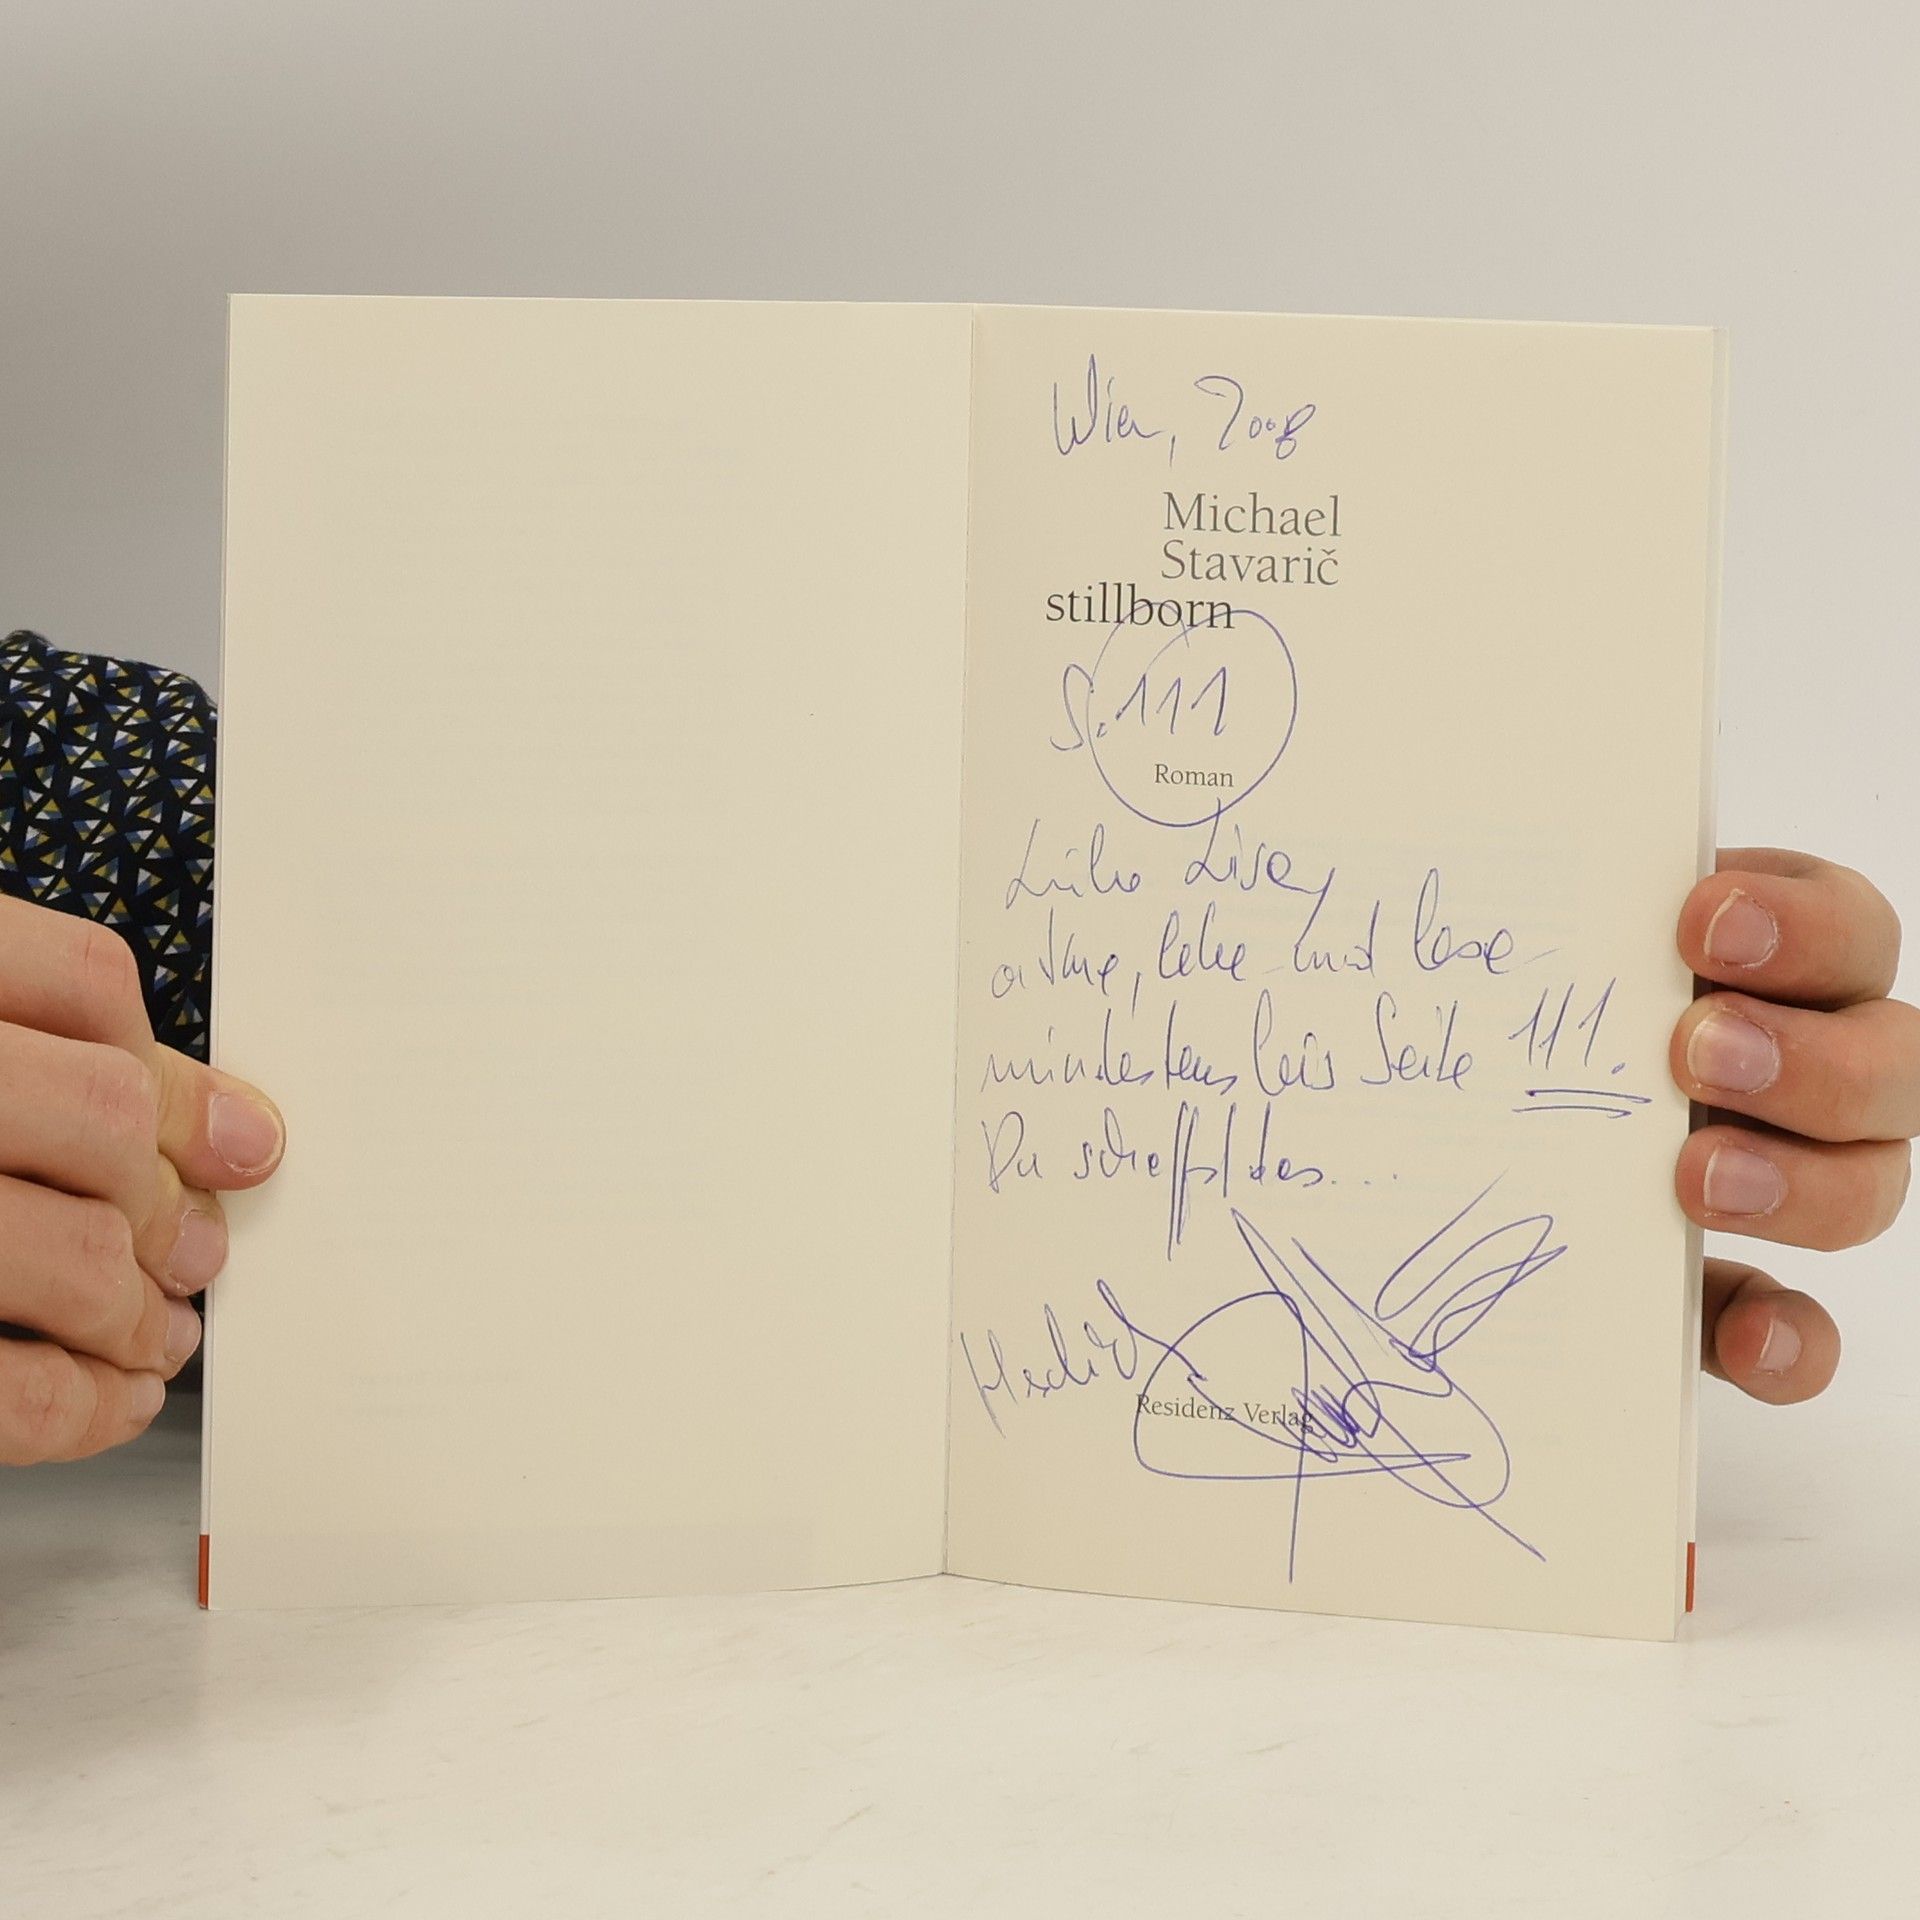 Wien, 2008
Michael
Stavarič
stillborn
S. 111
Roman
Liebe Lisa,
atme, lebe und lese
mindestens bis Seite 111.
Du schaffst das...
Residenz Verlag